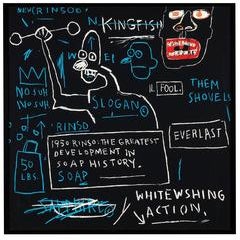 NEVERRINSOO
KINGFISH
NO SUH
NO SUH
SLOGAN©
IL FOOL.
THEM
SHOVELS
RINSO
1950 RINSO: THE GREATEST
DEVELOPMENT IN
SOAP HISTORY.
SOAP
EVERLAST
50
LBS.
WHITEWSHING
ACTION.